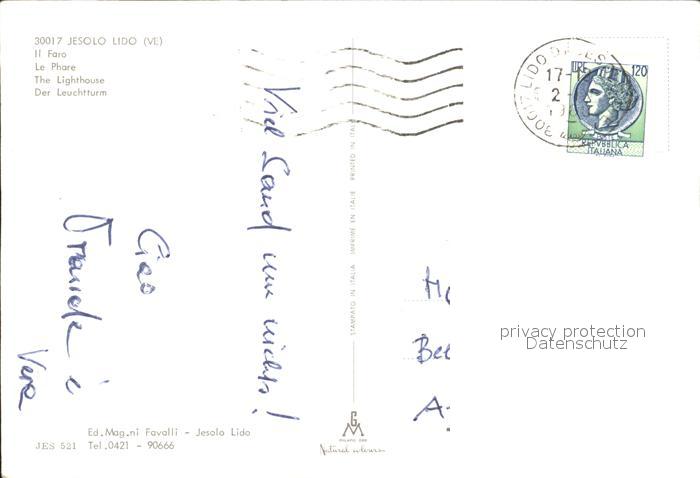 30017 JESOLO LIDO (VE)
Il Faro
Le Phare
The Lighthouse
Der Leuchtturm
Viel Sand um nichts!
Ciao
i
Vera
Ed.Mag.ni Favalli - Jesolo Lido
JES 521 Tel.0421 - 90666
STAMPATO IN ITALIA IMPRIMÉ EN ITALIE PRINTED IN ITALY
MILANO
Natural colours
30017 LIDO D
17-1
2
LIRE 120
REPVBBLICA
ITALIANA
H
Be
A
privacy protection
Datenschutz